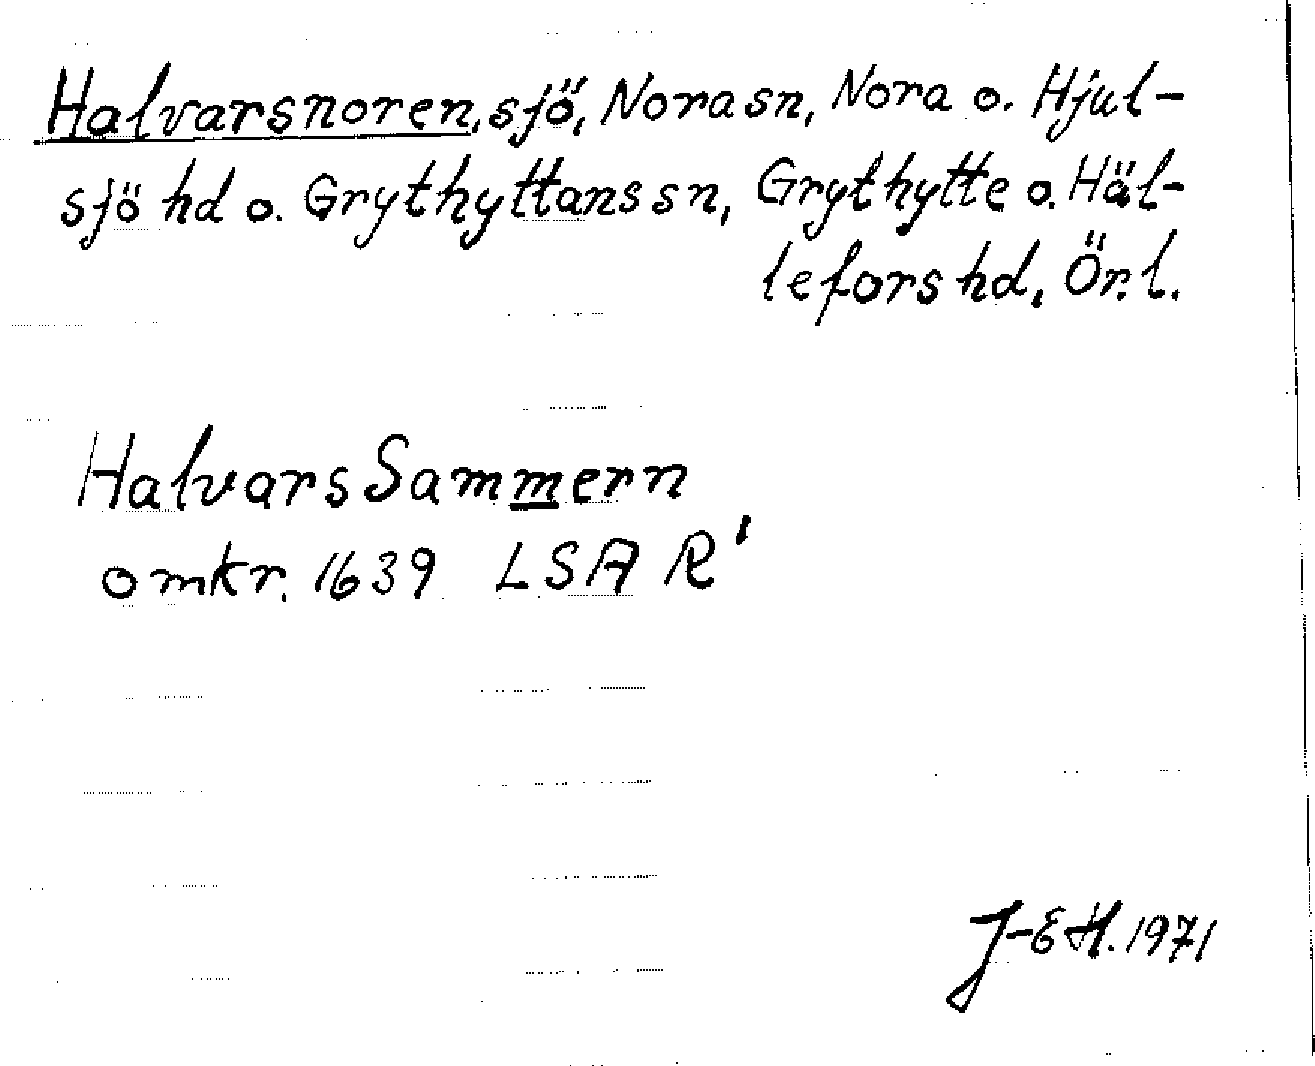 Halvarsnoren, sjö, Nora sn, Nora o. Hjul-
sjö hd o. Grythyttans sn, Grythytte o. Häl-
lefors hd, Ör. l.
Halvars Sammern
omkr. 1639 LSA R'
J-EH. 1971